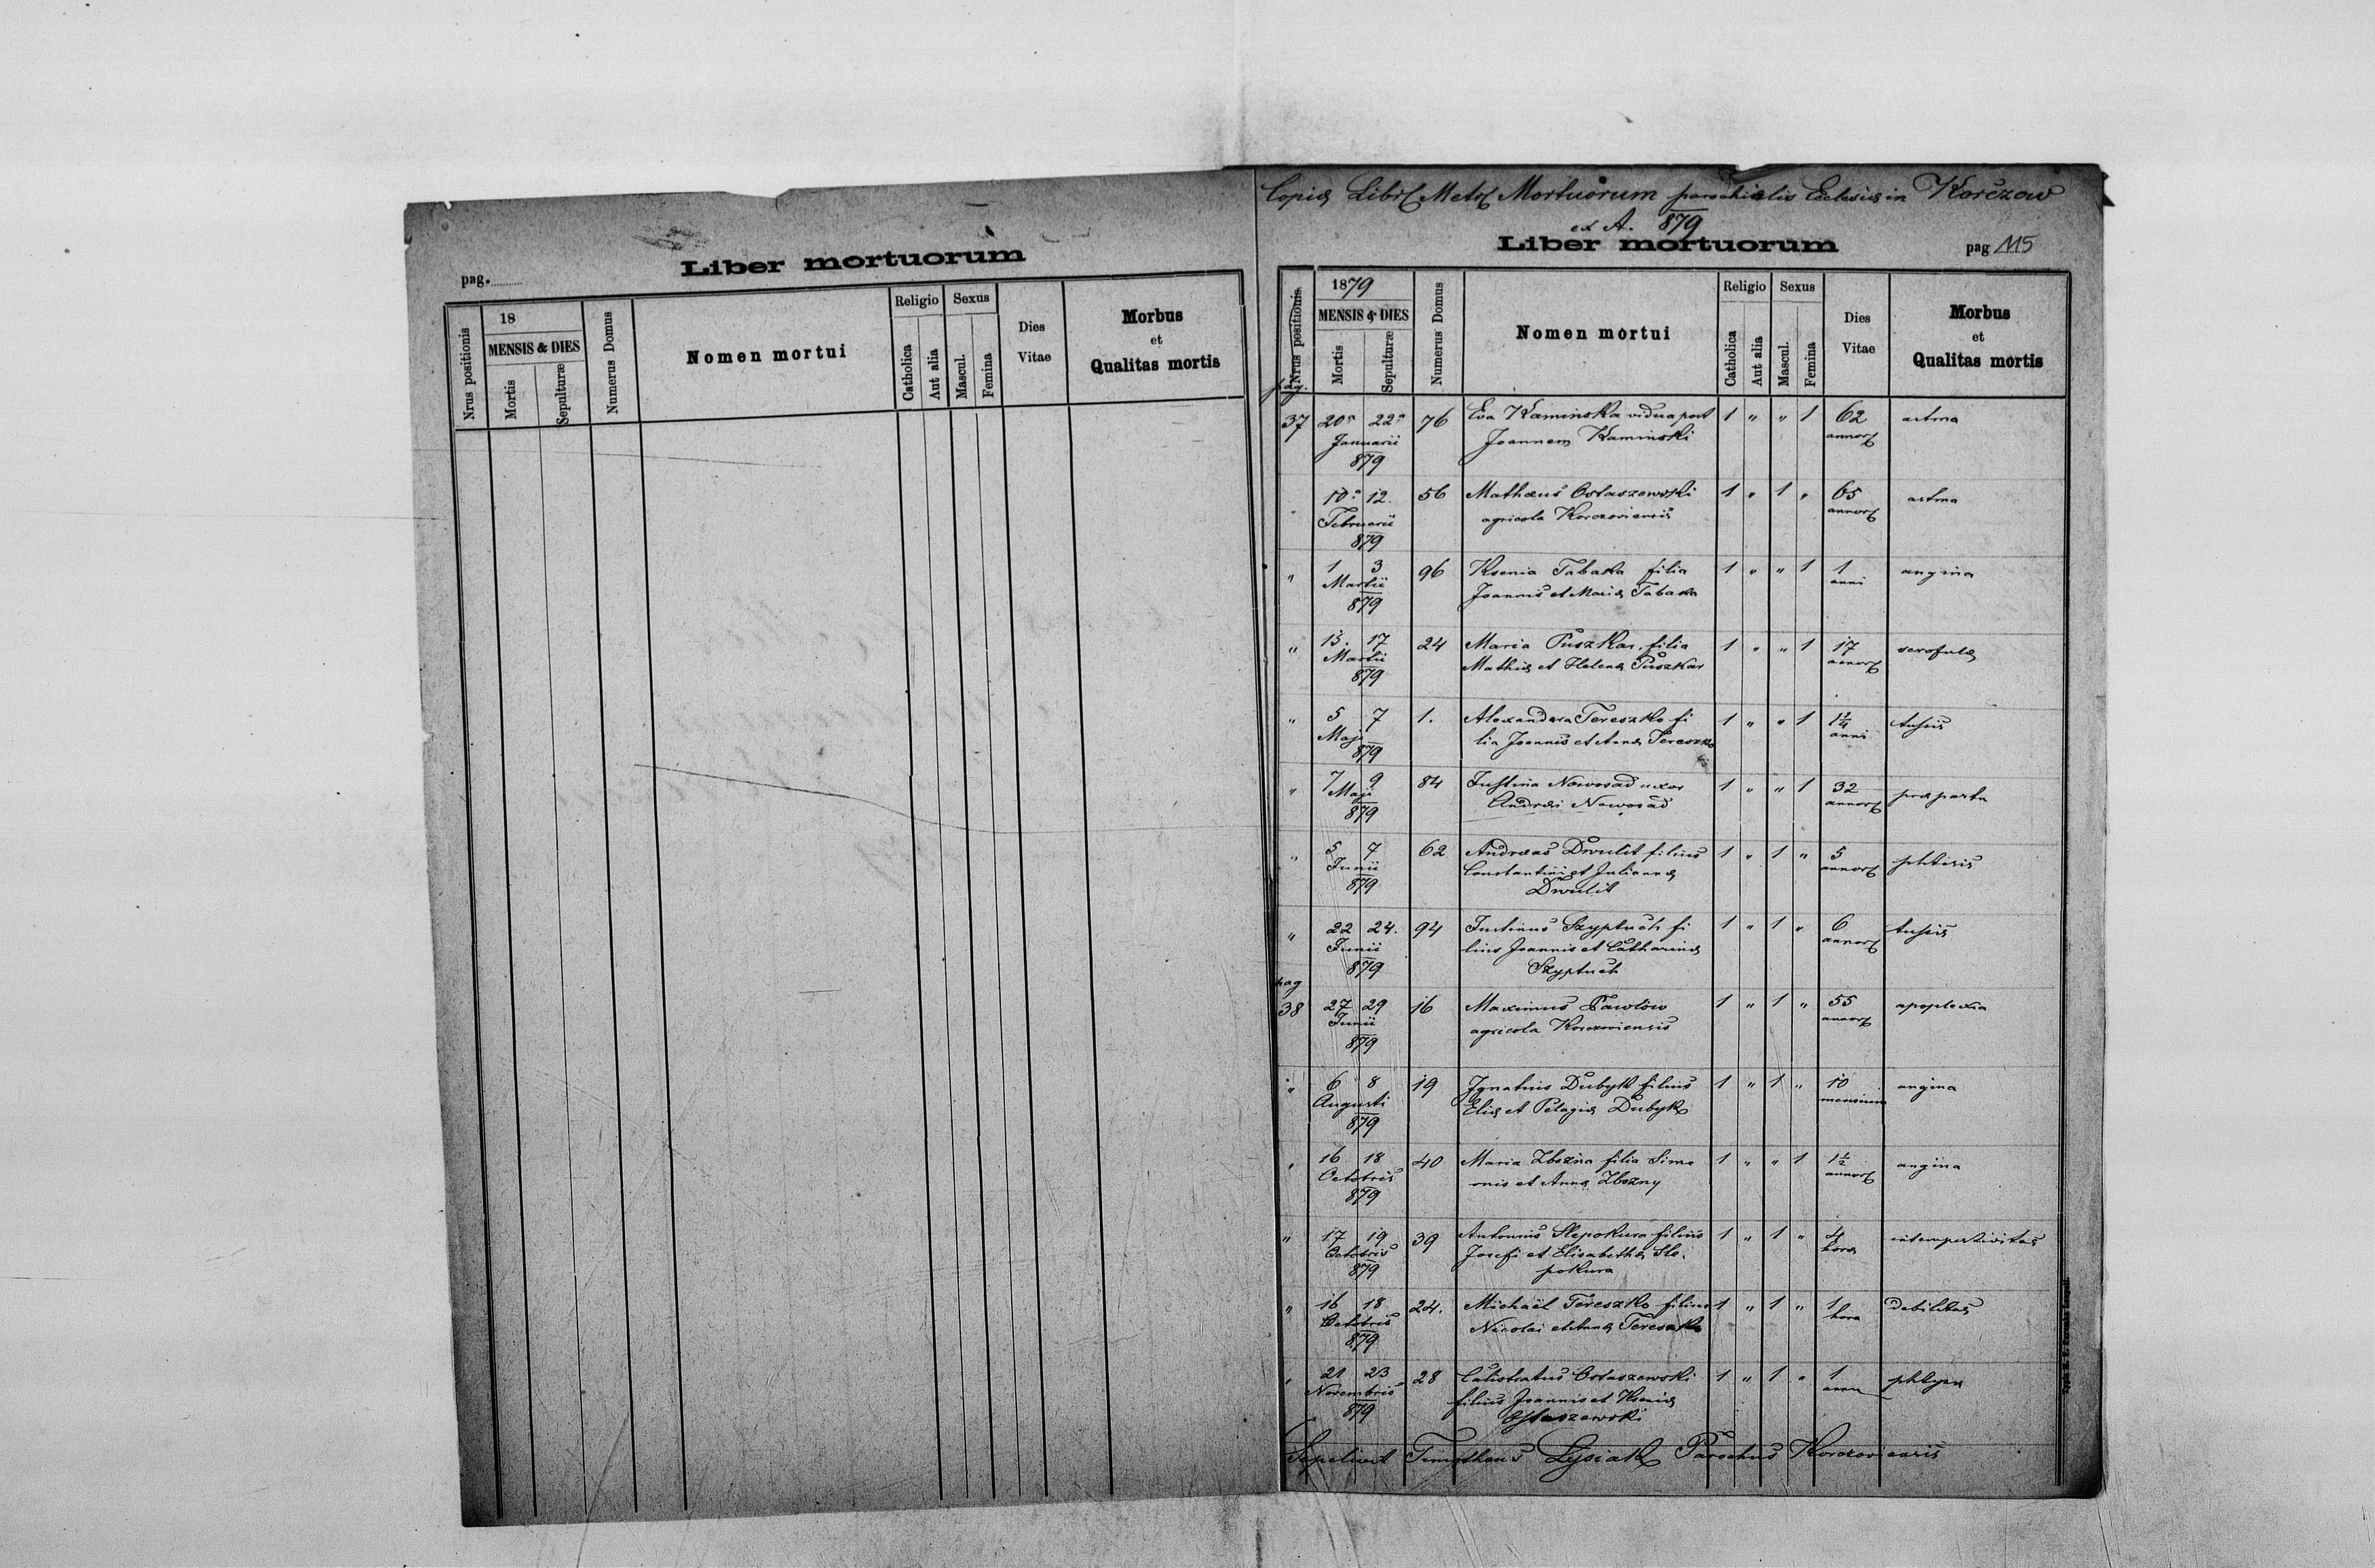 pag.
Liber mortuorum
Nrus positionis
18
MENSIS & DIES
Mortis
Sepulturæ
Numerus Domus
Nomen mortui
Religio
Catholica
Aut alia
Sexus
Mascul.
Femina
Dies
Vitae
Morbus
et
Qualitas mortis
Copia Libri Metr Mortuorum parochialis Ecclesiæ in Korczow
ex A. 879
Liber mortuorum
pag 115
Nrus positionis
1879
MENSIS & DIES
Mortis
Sepulturæ
Numerus Domus
Nomen mortui
Religio
Catholica
Aut alia
Sexus
Mascul.
Femina
Dies
Vitae
Morbus
et
Qualitas mortis
pag.
37 20a 22a 76 Eva Kaminska vidua post 1 " " 1 62 astma
Januarii Joannem Kaminski annor
879
10a 12. 56 Mathæus Ostaszewski 1 " 1 " 65 astma
Februarii agricola Korczoviensis annor
879
" 1 3 96 Ksenia Tabaka filia 1 " " 1 1 angina
Martii Joannis et Mariæ Tabaka anni
879
" 15. 17 24 Maria Puszkar, filia 1 " " 1 17 scrofulæ
Martii Mathiæ et Helenæ Puszkar annor
879
" 5 7 1. Alexandra Tereszko fi 1 " " 1 1 1/4 tussis
Maji lia Joannis et Annæ Tereszko anni
879
" 7 9 84 Justina Nowosad uxor 1 " " 1 32 præ partu
Maji Andreæi Nowosad annor
879
" 5 7 62 Andreas Dwulit filius 1 " 1 " 5 phtisis
Junii Constantini et Juliannæ annor
879 Dwulit
" 22 24. 94 Justinus Szyptuch fi 1 " 1 " 6 tussis
Junii lius Joannis et Catharinæ annor
879 Szyptuch
pag
38 27 29 16 Maximus Pawlów 1 " 1 " 55 apoplexia
Junii agricola Korczoviensis annor
879
" 6 8 19 Ignatius Dubyk filius 1 " 1 " 10 angina
Augusti Eliæ et Pelagiæ Dubyk mensium
879
" 16 18 40 Maria Zboźna filia Sime 1 " " 1 1 1/2 angina
Octobris onis et Annæ Zbozny annor
879
" 17 19 39 Antonius Slepokura filius 1 " 1 " 4 intempestivitas
Octobris Josefi et Elisabethæ Sle-
879 pokura
" 16 18 24. Michaël Tereszko filius 1 " 1 " 1 debilitas
Octobris Nicolai et Annæ Tereszko hora
879
" 21 23 28 Calistratus Ostaszewski 1 " 1 " 1
Novembris filius Joannis et Kseniæ
879 Ostaszewski
Sepelivit Timotheus Lysiak Parochus